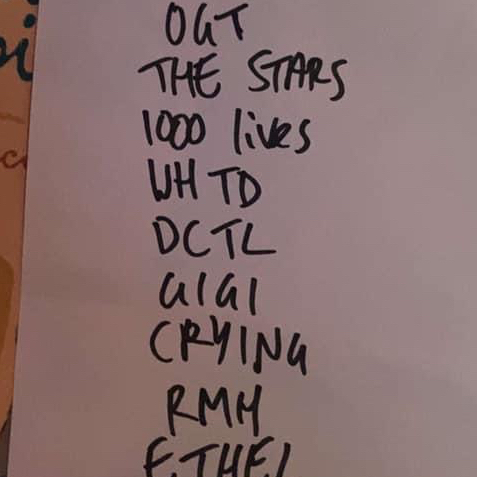 OGT
THE STARS
1000 lives
WHTD
DCTL
GIGI
CRYING
RMH
ETHEL